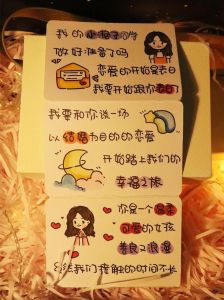 我的小狗子同学
做好准备了吗
恋爱的开始是表白
我要开始跟你表白了
我要和你谈一场
以结婚为目的的恋爱
开始踏上我们的
幸福之旅
你是一个温柔
可爱的女孩
善良又浪漫
虽然我们接触的时间不长